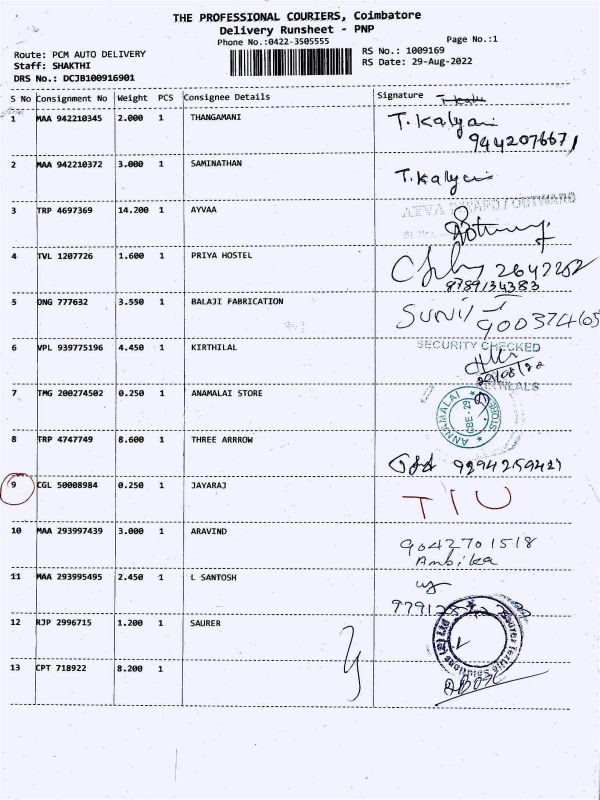 THE PROFESSIONAL COURIERS, Coimbatore
Delivery Runsheet - PNP
Phone No.:0422-3505555
Page No.:1
Route: PCM AUTO DELIVERY
RS No.: 1009169
Staff: SHAKTHI
RS Date: 29-Aug-2022
DRS No.: DCJB100916901
S No Consignment No Weight PCS Consignee Details Signature
1 MAA 942210345 2.000 1 THANGAMANI T. Kalyani
9442076671
2 MAA 942210372 3.000 1 SAMINATHAN T. Kalyani
3 TRP 4697369 14.200 1 AYVAA
4 TVL 1207726 1.600 1 PRIYA HOSTEL
8789134383
5 ONG 777632 3.550 1 BALAJI FABRICATION SUNIL
6 VPL 939775196 4.450 1 KIRTHILAL SECURITY CHECKED
7 TMG 200274502 0.250 1 ANAMALAI STORE ANNAMALAI STORES CBE - 29
8 TRP 4747749 8.600 1 THREE ARRROW
9 CGL 50008984 0.250 1 JAYARAJ TIU
10 MAA 293997439 3.000 1 ARAVIND 9042701518
Ambika
11 MAA 293995495 2.450 1 L SANTOSH
12 RJP 2996715 1.200 1 SAURER
13 CPT 718922 8.200 1